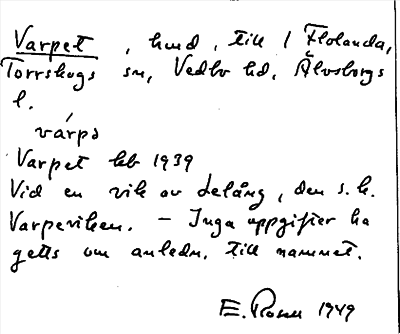 Varpet, hmd, till 1 Flolanda,
Torrskogs sn, Vedbo hd, Älvsborgs
l.
várpə
Varpet kb 1939
Vid en vik av Lelång, den s. k.
Varpeviken. – Inga uppgifter ha
getts om anledn. till namnet.
E. Rosen 1949